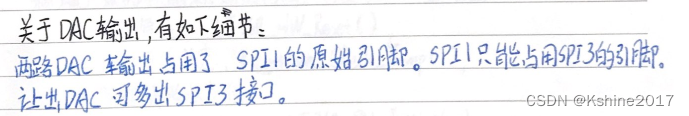 关于DAC输出,有如下细节:
两路DAC输出占用了 SPI1的原始引脚。SPI1只能占用SPI3的引脚。
让出DAC可多出SPI3接口。
CSDN @Kshine2017